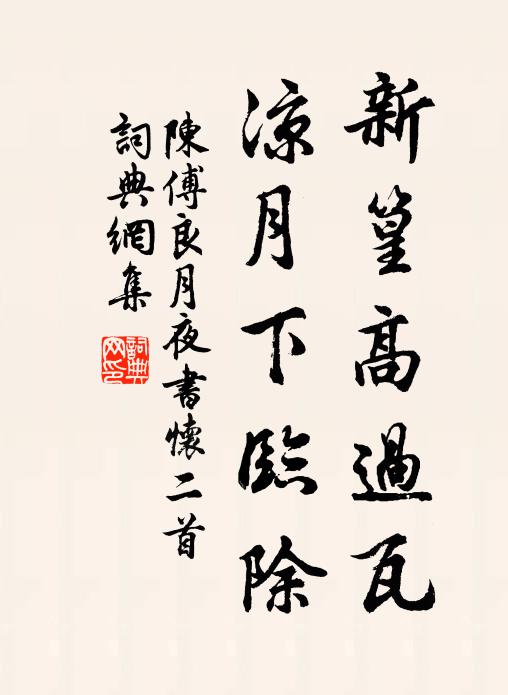 新篁高過瓦
涼月下臨除
陳傅良月夜書懷二首
詞典網集
詞典网印